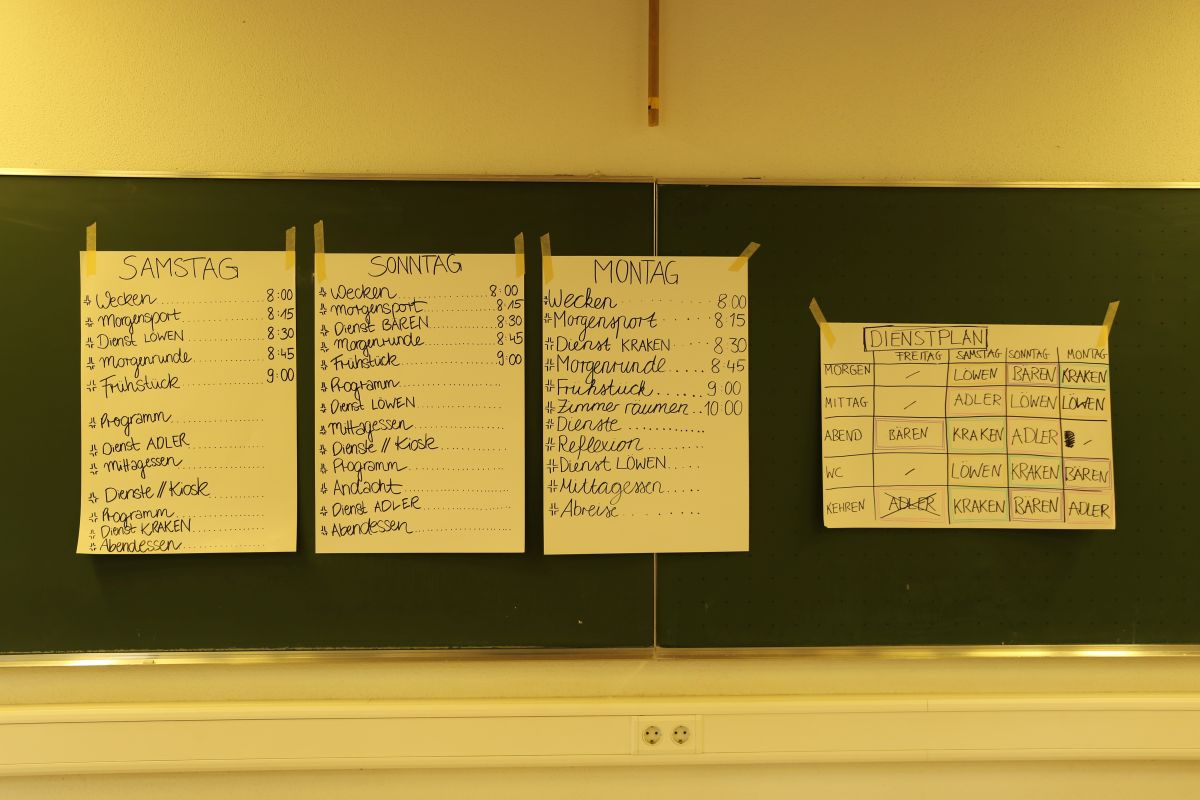 SAMSTAG
Wecken 8:00
Morgensport 8:15
Dienst LÖWEN 8:30
Morgenrunde 8:45
Frühstück 9:00
Programm
Dienst ADLER
Mittagessen
Dienste // Kiosk
Programm
Dienst KRAKEN
Abendessen
SONNTAG
Wecken 8:00
Morgensport 8:15
Dienst BÄREN 8:30
Morgenrunde 8:45
Frühstück 9:00
Programm
Dienst LÖWEN
Mittagessen
Dienste // Kiosk
Programm
Andacht
Dienst ADLER
Abendessen
MONTAG
Wecken 8:00
Morgensport 8:15
Dienst KRAKEN 8:30
Morgenrunde 8:45
Frühstück 9:00
Zimmer räumen 10:00
Dienste
Reflexion
Dienst LÖWEN
Mittagessen
Abreise
DIENSTPLAN
FREITAG SAMSTAG SONNTAG MONTAG
MORGEN / LÖWEN BÄREN KRAKEN
MITTAG / ADLER LÖWEN LÖWEN
ABEND BÄREN KRAKEN ADLER -
WC / LÖWEN KRAKEN BÄREN
KEHREN ADLER KRAKEN BÄREN ADLER